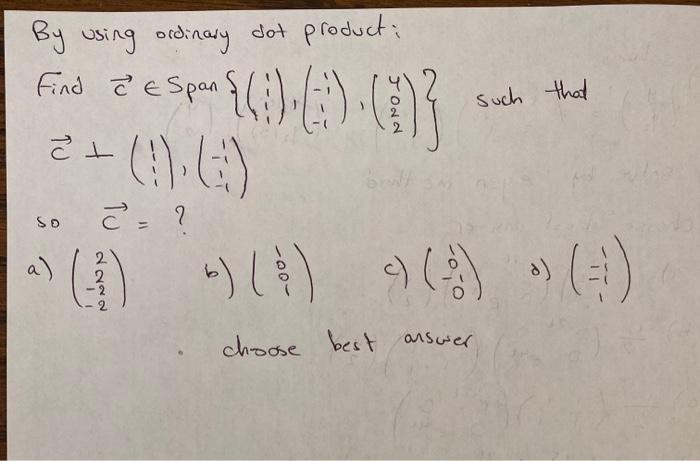 By using ordinary dot product:
Find c⃗ ∈ Span {(1 1 1 1), (1 -1 1 -1), (4 0 2 2)} such that
c⃗ ⊥ (1 1 1 1), (1 -1 1 -1)
so c⃗ = ?
a) (2 2 -2 -2) b) (1 0 0 1) c) (1 0 -1 0) d) (1 -1 -1 1)
. choose best answer